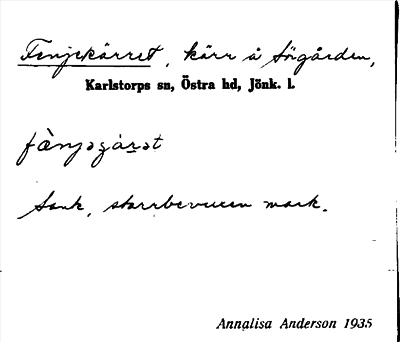 Fenjekärret, kärr å Sörgården,
Karlstorps sn, Östra hd, Jönk. l.
fæ̀njəɟäʀət
Sank, starrbevuxen mark.
Annalisa Anderson 1935